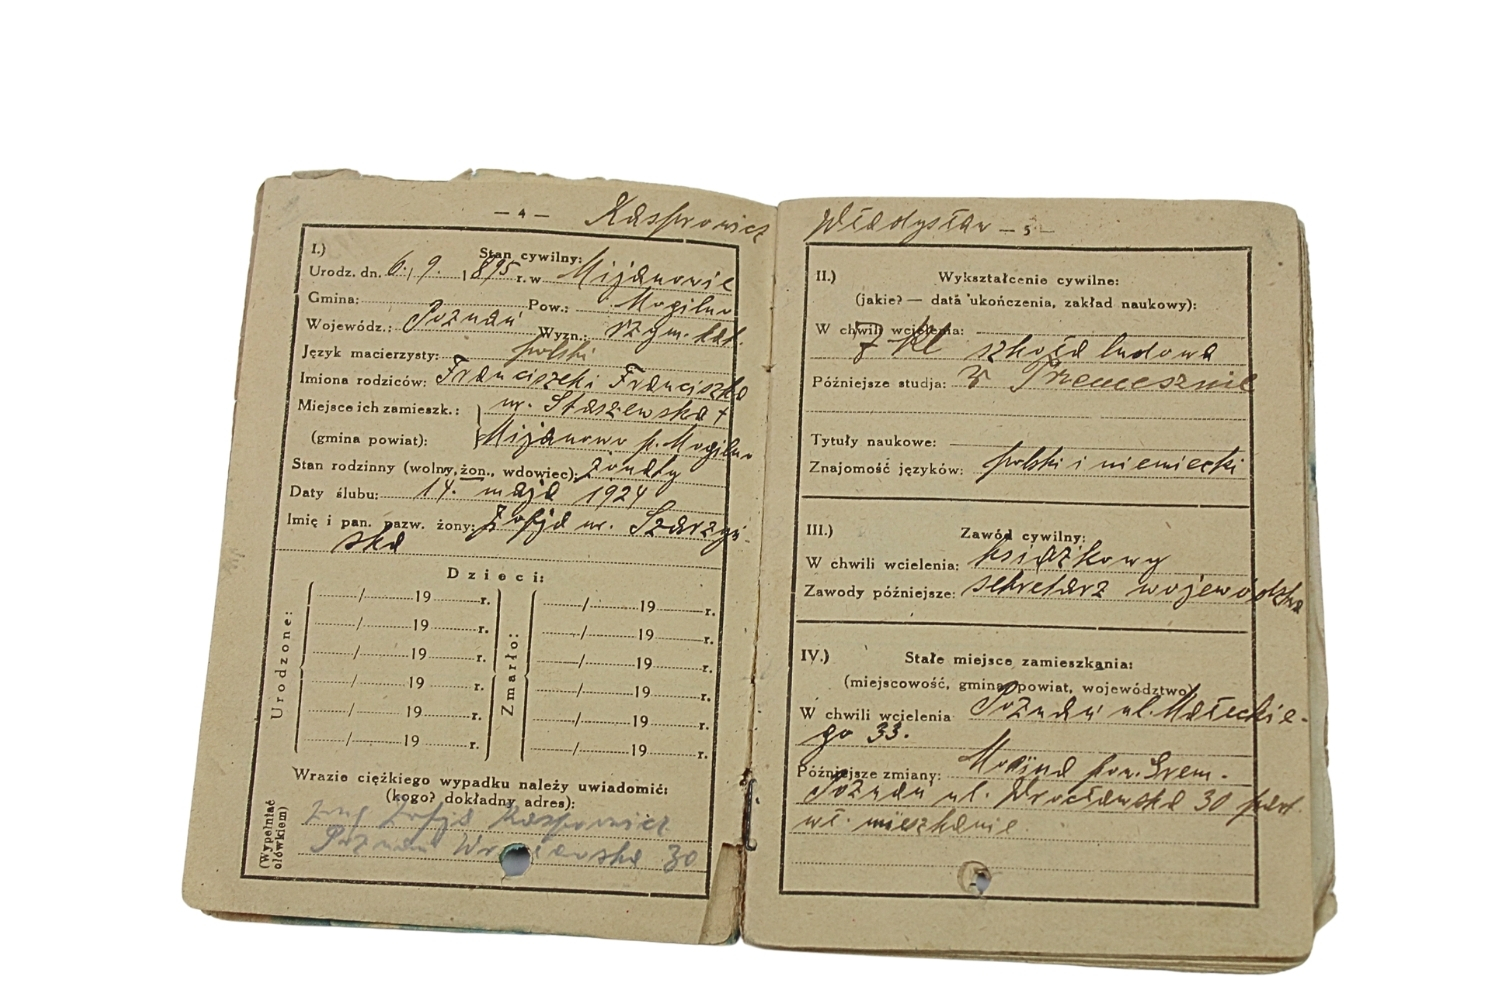 — 4 — Kasprowicz
I.) Stan cywilny:
Urodz. dn. 6. 9. 1895 r. w Mijanowie
Gmina: Pow.: Mogilno
Wojewódz.: Poznań Wyzn.: rzym. kat.
Język macierzysty: polski
Imiona rodziców: Franciszek i Franciszka
Miejsce ich zamieszk.: ur. Staszewska +
(gmina powiat): Mijanowo p. Mogilno
Stan rodzinny (wolny, żon., wdowiec): żonaty
Daty ślubu: 14. maja 1924
Imię i pan. nazw. żony: Zofja ur. Szarzyń-
ska
Dzieci:
Urodzone:
Zmarło:
/ 19 r. / 19 r.
/ 19 r. / 19 r.
/ 19 r. / 19 r.
/ 19 r. / 19 r.
/ 19 r. / 19 r.
/ 19 r. / 19 r.
Wrazie ciężkiego wypadku należy uwiadomić:
(kogo? dokładny adres):
(Wypełniać ołówkiem)
Zofja Kasprowicz
Poznań 30
Władysław — 5 —
II.) Wykształcenie cywilne:
(jakie? — data ukończenia, zakład naukowy):
W chwili wcielenia:
7 kl szkoła ludowa
Późniejsze studja: w Trzemesznie
Tytuły naukowe:
Znajomość języków: polski i niemiecki
III.) Zawód cywilny:
W chwili wcielenia: książkowy
Zawody późniejsze: sekretarz wojewódzki
IV.) Stałe miejsce zamieszkania:
(miejscowość, gmina, powiat, województwo)
W chwili wcielenia Poznań ul. Małeckie-
go 33.
Późniejsze zmiany: pow. Śrem-
Poznań ul. Wrocławska 30 part.
wł. mieszkanie.